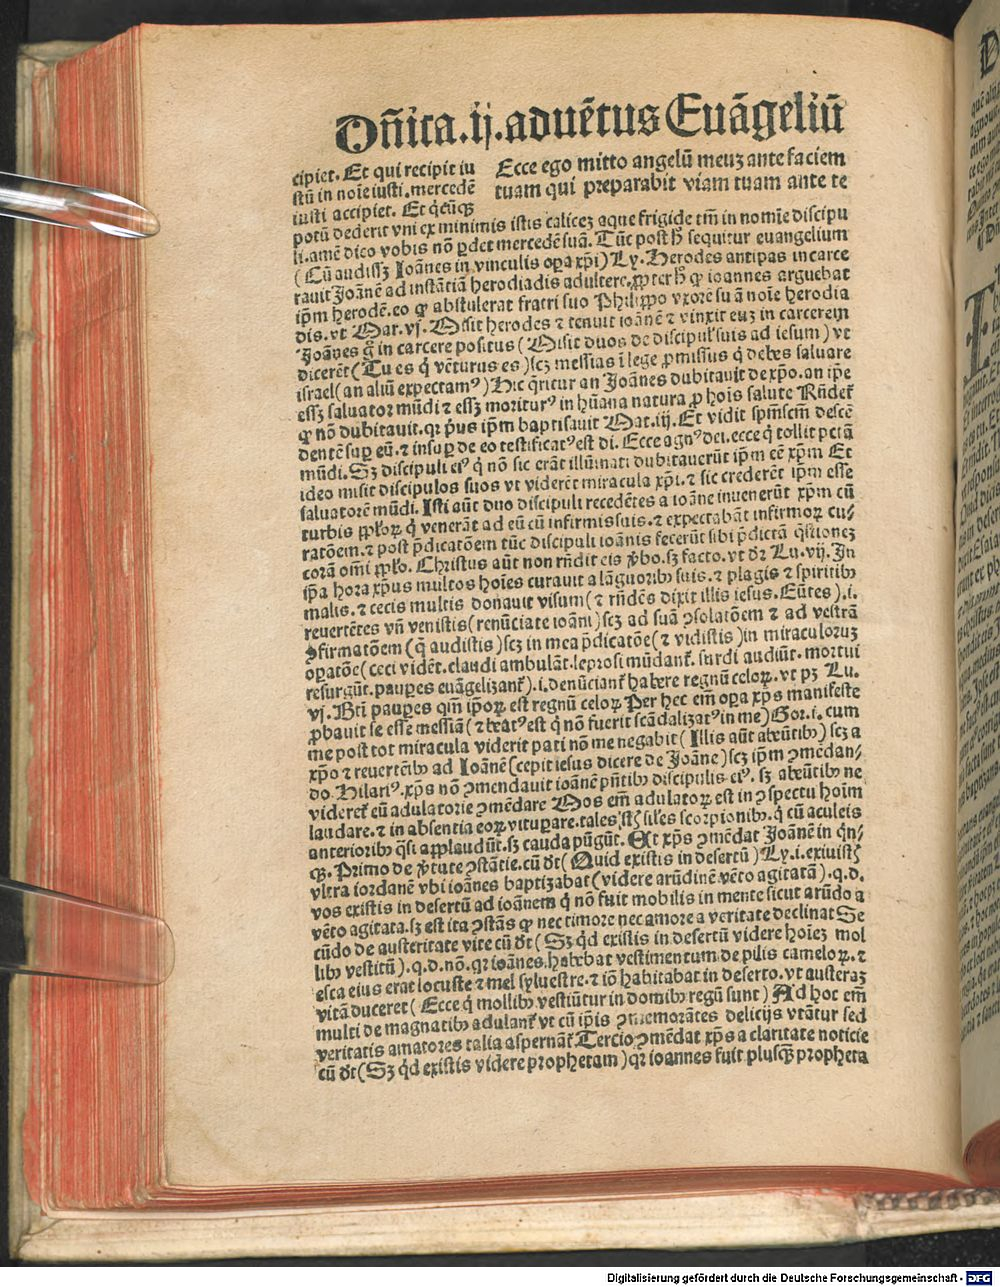 Dñica.ij.aduẽtus Euãgeliũ
cipiet. Et qui recipit iu
stũ in noĩe iusti.mercedẽ
iusti accipiet. Et q̃cũqꝫ
Ecce ego mitto angelũ meuꝫ ante faciem
tuam qui preparabit viam tuam ante te
potũ dederit vni ex minimis istis caliceꝫ aque frigide tm̃ in nomĩe discipu
li.amẽ dico vobis nõ ꝑdet mercedẽ suã. Tũc post h̃ sequitur euangelium
(Cũ audissꝫ Ioãnes in vinculis oꝑa xp̃i) Ly. Herodes antipas in carce
rauit Joãnẽ ad instãtiã herodiadis adultere.ꝓpter h̃ ꝙ ioannes arguebat
ip̃m herodẽ.eo ꝙ abstulerat fratri suo Philippo vxorẽ suã noĩe herodia
dis.vt Mar.vj. Misit herodes ⁊ tenuit ioãnẽ ⁊ vinxit euꝫ in carcerem
Joãnes g̃ in carcere positus (Misit duos de discipul̃ suis ad iesum) vt
dicerẽt (Tu es q̇ vẽturus es) scꝫ messias ĩ lege ꝓmissus q̇ debes saluare
israel (an aliũ expectamꝰ) Hic q̃ritur an Joãnes dubitauit de xp̃o.an ip̃e
essꝫ saluator mũdi ⁊ essꝫ moriturꝰ in hũana natura ꝓ hoĩs salute Rñdet̃
ꝙ nõ dubitauit.qꝛ pꝰus ip̃m baptisauit Mat.iij. Et vidit spm̃scm̃ descẽ
dentẽ suꝑ eũ.⁊ insuꝑ de eo testificatꝰ est di. Ecce agnꝰ dei.ecce q̇ tollit pctã
mũdi. Sꝫ discipuli eiꝰ q̇ nõ sic erãt illũinati dubitauerũt ip̃m cẽ xp̃m Et
ideo misit discipulos suos vt viderẽt miracula xp̃i.⁊ sic crederẽt ip̃m esse
saluatorẽ mũdi. Isti aũt duo discipuli recedẽtes a ioãne inuenerũt xp̃m cũ
turbis ppl̃oꝝ q̇ venerãt ad eũ cũ infirmis suis.⁊ expectabãt infirmoꝝ cu/
ratõem.⁊ post p̃dicatõem tũc discipuli ioãnis fecerũt sibi p̃dictã q̃stioneꝫ
corã om̃i ppl̃o. Christus aũt non rñdit eis v̾bo.sꝫ facto.vt dꝛ̃ Lu.vij. In
ip̃a hora xp̃us multos hoĩes curauit a lãguoribꝰ suis.⁊ plagis ⁊ spiritibꝰ
malis.⁊ cecis multis donauit visum (⁊ rñdẽs dixit illis iesus. Eũtes).i.
reuertẽtes vñ venistis (renũciate ioãni) scꝫ ad suã ꝯsolatõem ⁊ ad vestrã
ꝯfirmatõem (q̃ audistis) scꝫ in mea p̃dicatõe (⁊ vidistis) in miraculoruꝫ
oꝑatõe (ceci vidẽt.claudi ambulãt.leprosi mũdant̃.surdi audiũt.mortui
resurgũt.pauꝑes euãgelizant̃).i.denũciant̃ habere regnũ celoꝝ.vt pꝫ Lu.
vj. Btĩ pauꝑes qm̃ ip̃oꝝ est regnũ celoꝝ Per hec em̃ oꝑa xp̃s manifeste
ꝓbauit se esse messiã (⁊ beatꝰ est q̇ nõ fuerit scãdalizatꝰ in me) Gor.i. cum
me post tot miracula viderit pati nõ me negabit (Illis aũt abeũtibꝰ) scꝫ a
xp̃o ⁊ reuertẽtibꝰ ad Ioãnẽ (cepit iesus dicere de Joãne) scꝫ ip̃m ꝯmẽdan/
do. Hilariꝰ.xp̃s nõ ꝯmendauit ioãnẽ pñtibꝰ discipulis eiꝰ. sꝫ abeũtibꝰ ne
videret̃ eũ adulatorie ꝯmẽdare Mos em̃ adulatoꝝ est in ꝯspectu hoĩm
laudare.⁊ in absentia eoꝝ vituꝑare.tales st̃ sil̃es scorpionibꝰ.q̇ cũ aculeis
anterioribꝰ q̃si applaudũt.sꝫ cauda pũgũt. Et xp̃s ꝯmẽdat Joãnẽ in q̃n/
qꝫ. Primo de v̾tute ꝯstãtie.cũ dt̃ (Quid existis in desertũ) Ly.i.exiuistꝭ
vltra iordanẽ vbi ioãnes baptizabat (videre arũdinẽ vẽto agitatã).q.d.
vos existis in desertũ ad ioãnem q̇ nõ fuit mobilis in mente sicut arũdo a
vẽto agitata.sꝫ est ita ꝯstãs ꝙ nec timore nec amore a veritate declinat Se
cũdo de austeritate vite cũ dt̃ (Sꝫ qd̓ existis in desertũ videre hoĩeꝫ mol
libꝰ vestitũ).q.d.nõ.qꝛ ioãnes.habebat vestimentum de pilis cameloꝝ.⁊
esca eius erat locuste ⁊ mel syluestre.⁊ iõ habitabat in deserto.vt austeraꝫ
vitã duceret (Ecce q̇ mollibꝰ vestiũtur in domibꝰ regũ sunt) Ad hoc em̃
multi de magnatibꝰ adulant̃ vt cũ ip̃is ꝯmemorãtes delicijs vtãtur sed
veritatis amatores talia aspernãt̃ Tercio ꝯmẽdat xp̃s a claritate noticie
cũ dt̃ (Sꝫ qd̓ existis videre prophetam) qꝛ ioannes fuit plusqꝫ propheta
Digitalisierung gefördert durch die Deutsche Forschungsgemeinschaft - DFG